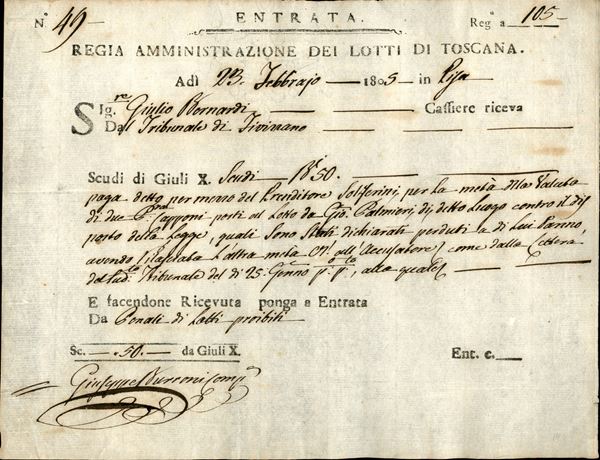 N.° 49 ENTRATA. Reg.ª a 105
REGIA AMMINISTRAZIONE DEI LOTTI DI TOSCANA.
Adì 23. Febbrajo 1805 in Pisa
Sig.re Giulio Bernardi Cassiere riceva
Dal Tribunale di
Scudi di Giuli X. Scudi 50.
paga detto per mano del Prenditore per la metà della Valuta
di due Capponi posti al Lotto da Gio. Palmieri di detto Luogo contro il dis
posto della Legge, quali sono Stati dichiarati perduti a di Lui Danno,
avendo rilasciata l'altra metà all'Accusatore, come dalla Lettera
del Tribunale del dì 25. Genn.o p.o p.o, alla quale
E facendone Ricevuta ponga a Entrata
Da Penali di Lotti proibiti
Sc. 50. da Giuli X. Ent. c.
Giuseppe